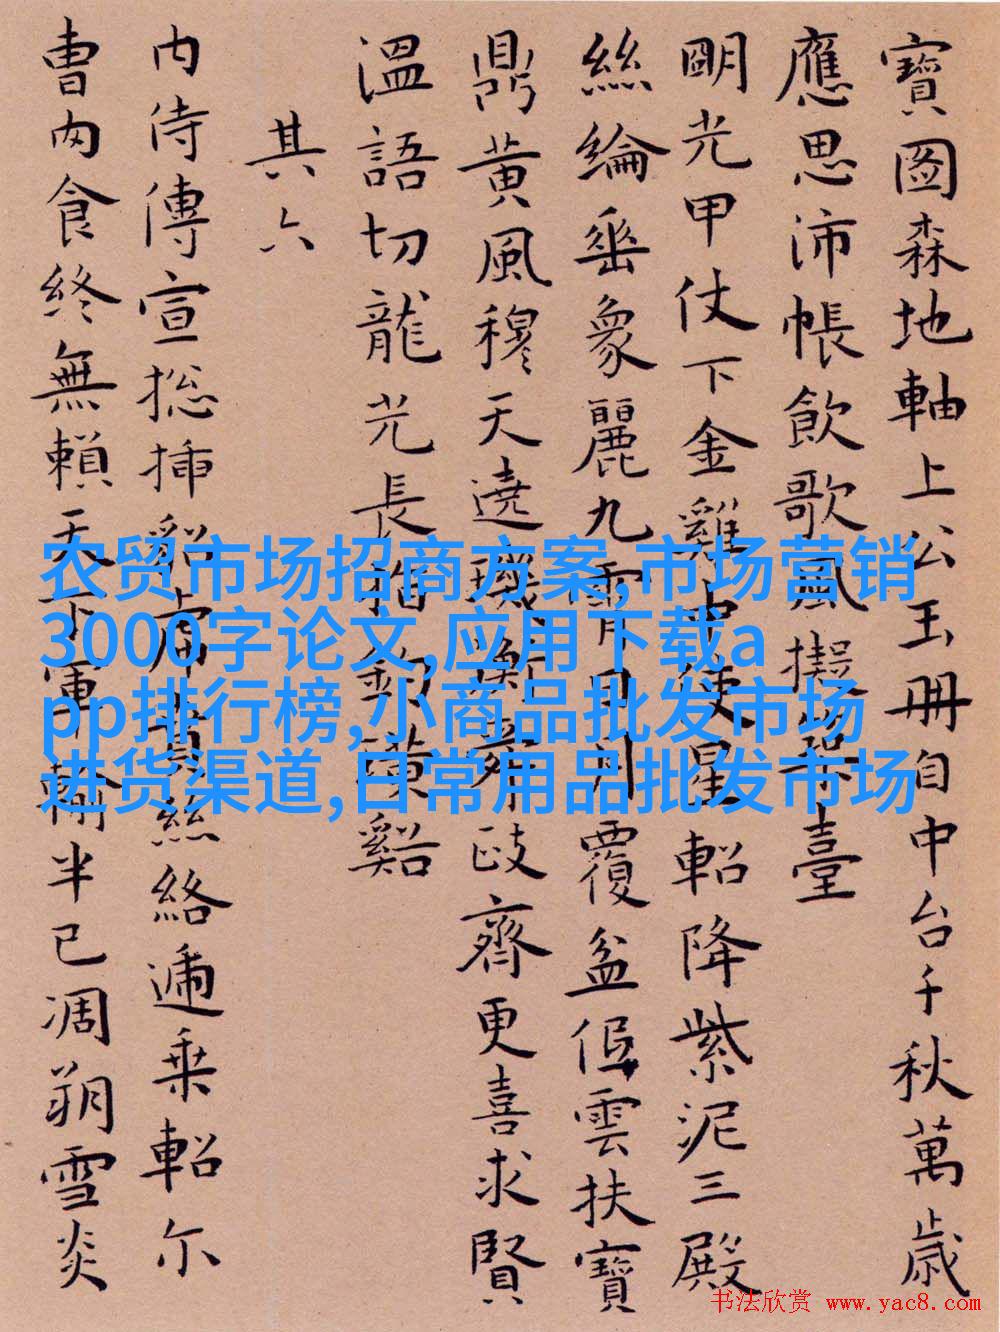 寶圖森地軸上公玉冊自中台千秋萬歲
應思沛帳飲歌風擬臺
朙光甲仗下金雞中使星軺降紫泥三殿
絲綸垂象麗九霄日月覆盆伍雲扶寶
鼎黃風穆天遶璣衡政齊更喜求賢
溫語切龍光長指釣璜谿
其六
內侍傳宣捴插貂虎賁絲絡遞乘軺尔
曹肉食終無賴天下軍輸半已凋朔雪炎
农贸市场招商方案,市场营销
3000字论文,应用下载a
pp排行榜,小商品批发市场
进货渠道,日常用品批发市场
书法欣赏 www.yac8.com